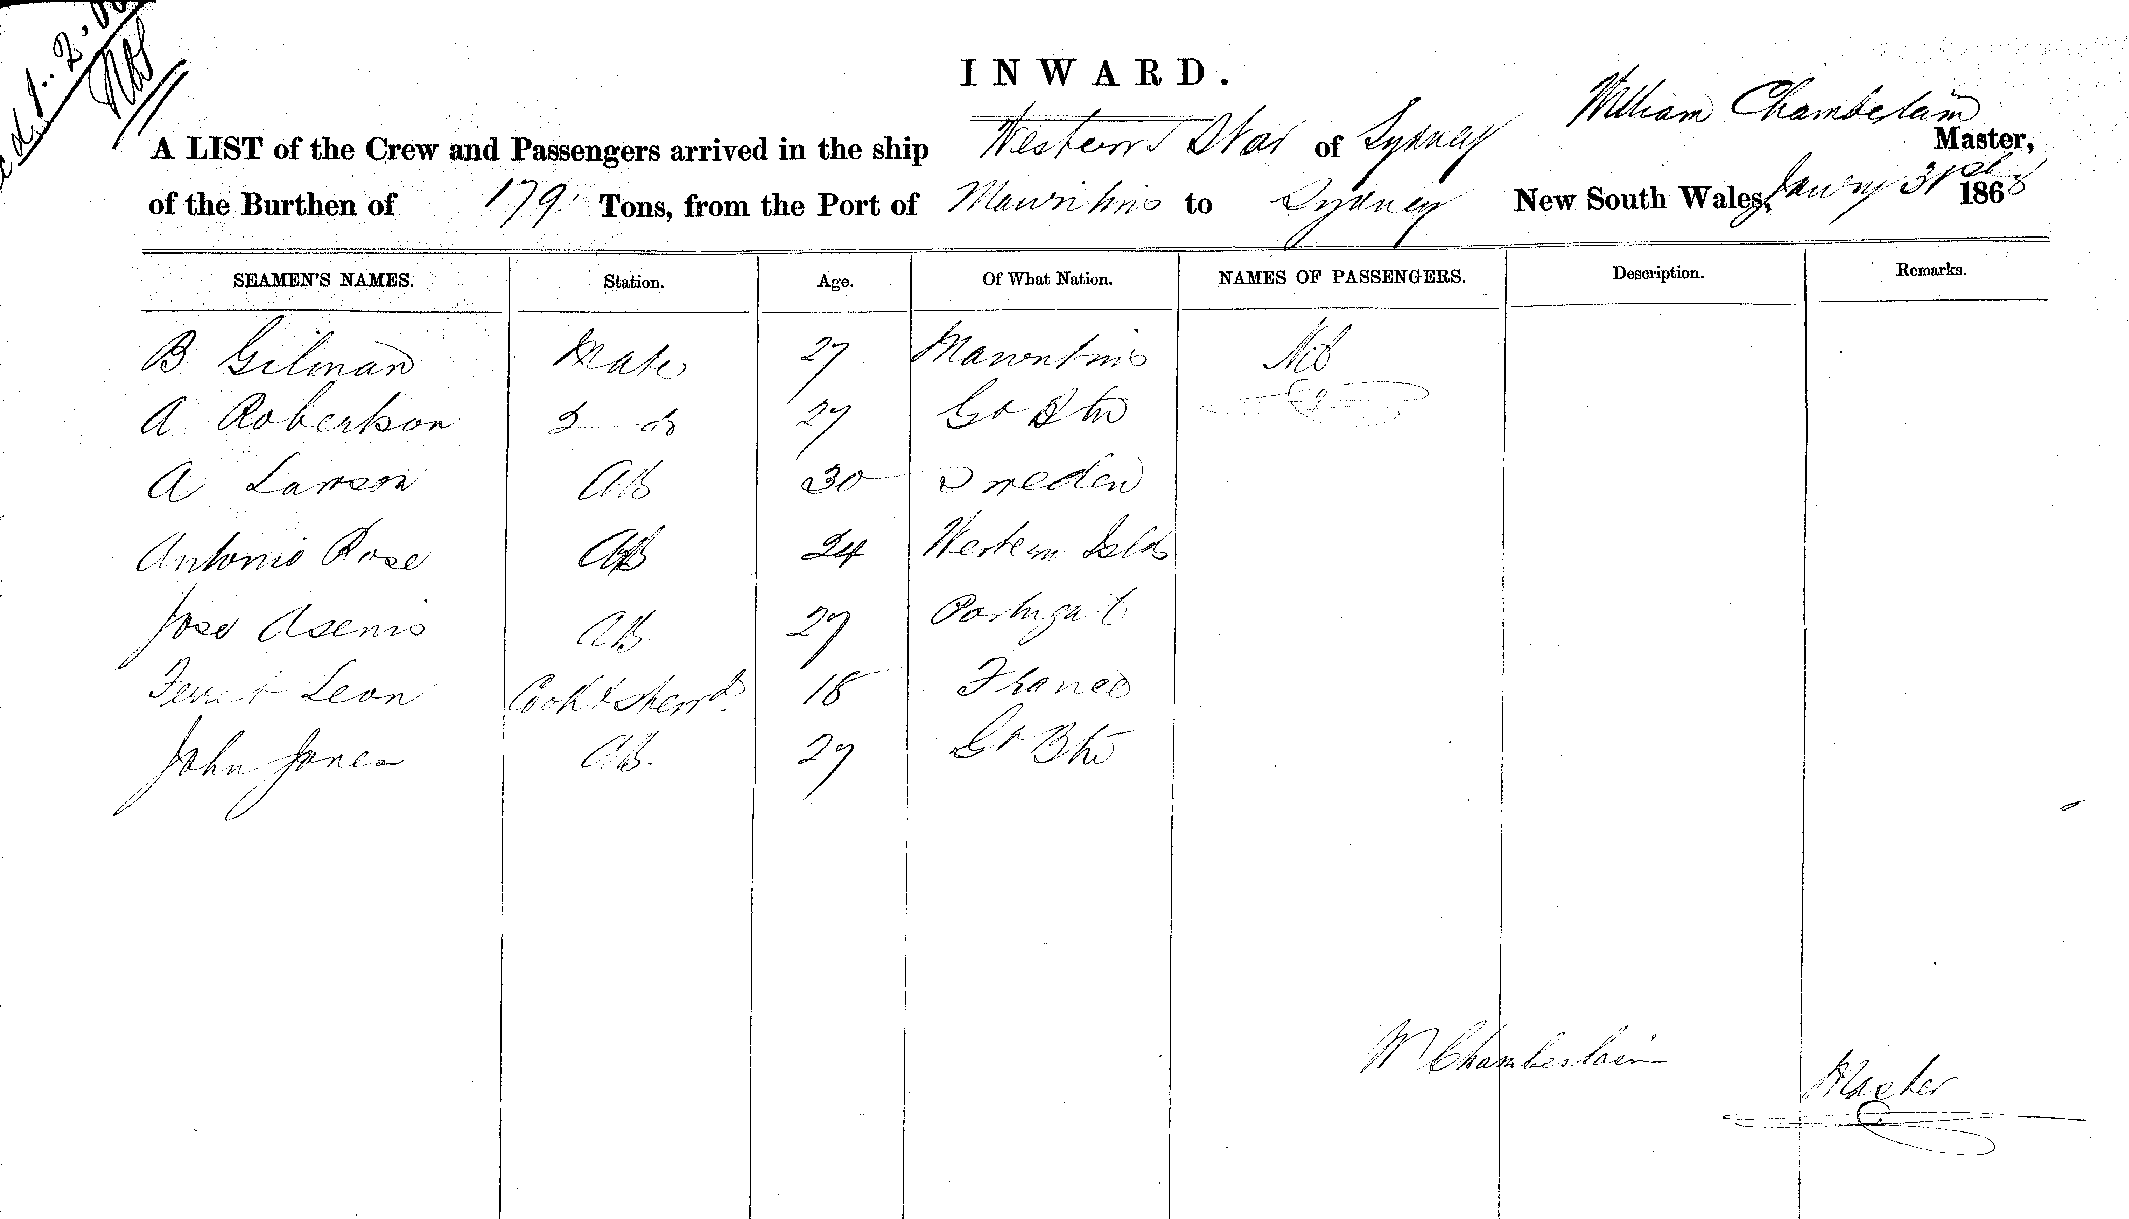 d 1.2.
INWARD.
William Chamberlain
A LIST of the Crew and Passengers arrived in the ship Western Star of Sydney Master,
of the Burthen of 179 Tons, from the Port of Mauritius to Sydney New South Wales, Jany 31st 1868
SEAMEN'S NAMES. Station. Age. Of What Nation. NAMES OF PASSENGERS. Description. Remarks.
B Gilman Mate 27 Mauritius Nil
A Robertson 2 do 27 Gt Btn
A Lawson AB 30 Sweden
Antonio Rose AB 24 Western Islds
Jose Asenis AB 27 Portugal
Leon Cook & Stewd. 18 France
John Jones AB. 27 Gt Btn
W Chamberlain
Master